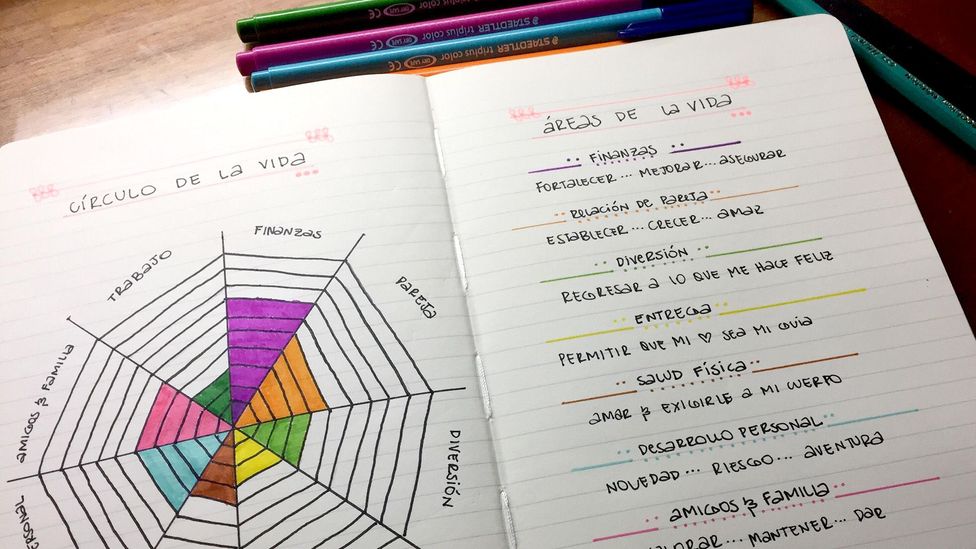 STAEDTLER triplus color DRY SAFE CE
STAEDTLER triplus color DRY SAFE CE
STAEDTLER triplus color DRY SAFE CE
CÍRCULO DE LA VIDA
FINANZAS
TRABAJO
PAREJA
AMIGOS & FAMILIA
DIVERSIÓN
ÁREAS DE LA VIDA
FINANZAS
FORTALECER... MEJORAR... ASEGURAR
RELACIÓN DE PAREJA
ESTABLECER... CRECER... AMAR
DIVERSIÓN
REGRESAR A LO QUE ME HACE FELIZ
ENTREGA
PERMITIR QUE MI ♡ SEA MI GUÍA
SALUD FÍSICA
AMAR & EXIGIRLE A MI CUERPO
DESARROLLO PERSONAL
NOVEDAD... RIESGO... AVENTURA
AMIGOS & FAMILIA
MANTENER... DAR